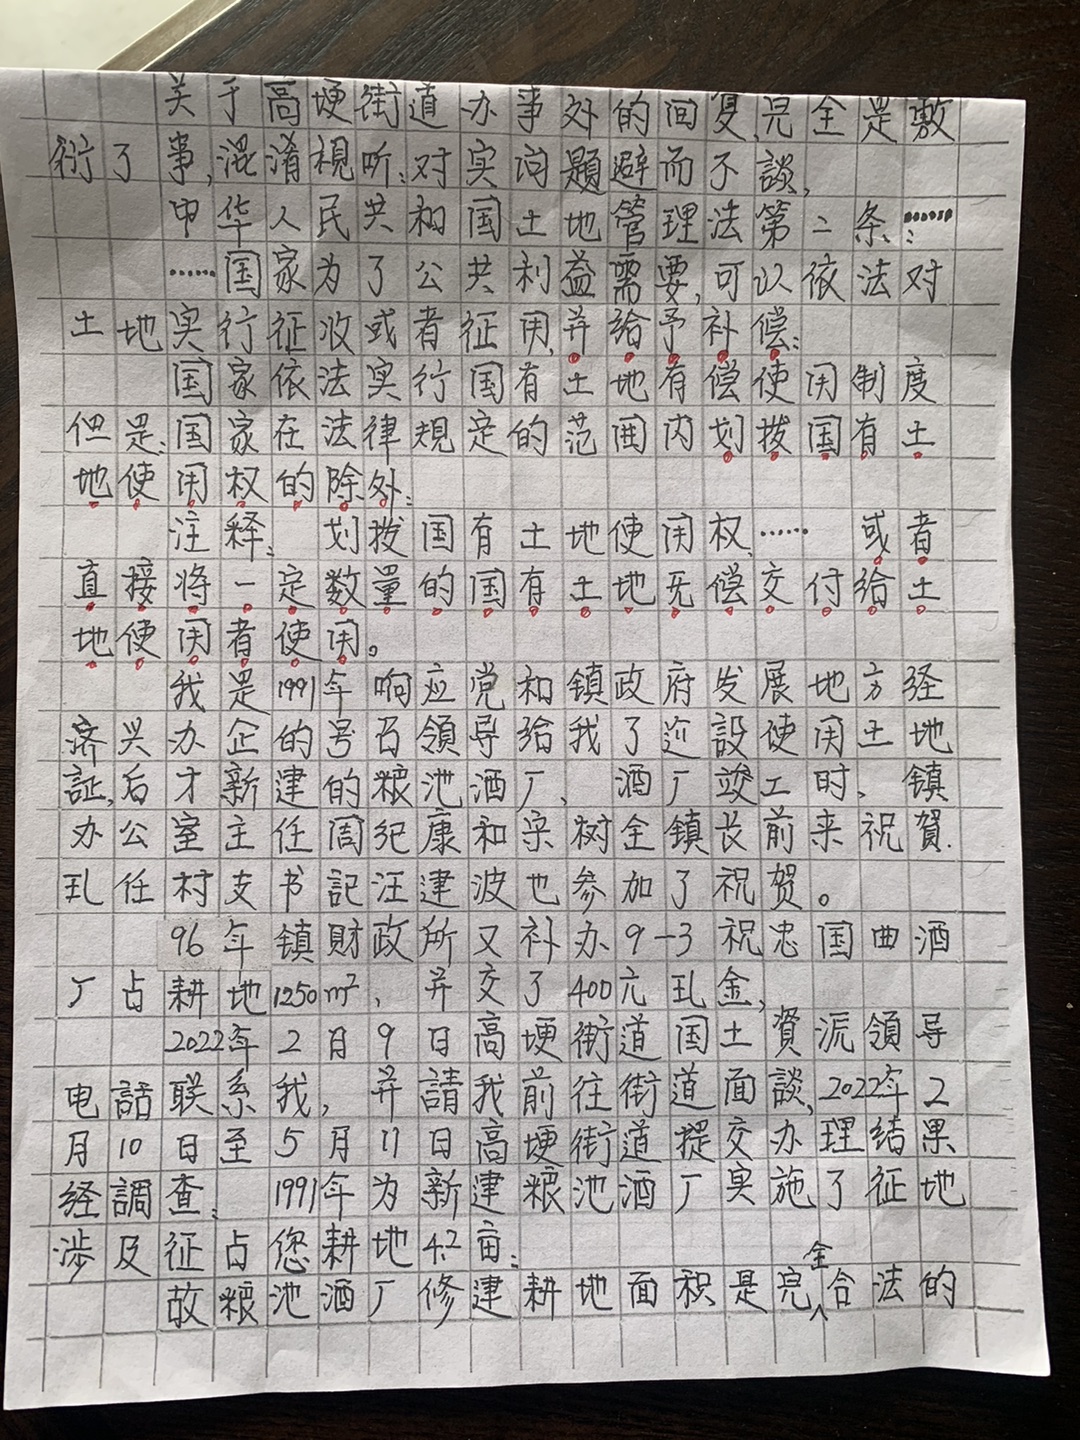 关于高埂街道办事处的回复,完全是敷
衍了事,混淆視听:对实问題避而不談,
中华人民共和国土地管理法第二条:……
……国家为了公共利益需要,可以依法对
土地实行征收或者征用,并给予补偿:
国家依法实行国有土地有偿使用制度
但是:国家在法律規定的范围内划拨国有土
地使用权的除外:
注释:划拨国有土地使用权……或者
直接将一定数量的国有土地无偿交付给土
地使用者使用。
我是1991年响应党和镇政府发展地方经
济兴办企的号召領导给我了建設使用土地
証,后才新建的粮池酒厂、酒厂竣工时、镇
办公室主任周纪康和宋树全镇长前来祝賀.
现任村支书記汪建波也参加了祝贺。
96年镇財政所又补办9-3祝忠国曲酒
厂占耕地1250m²,并交了400元现金,
2022年2月9日高埂街道国土資派領导
电話联系我,并請我前往街道面談,2022年2
月10日至5月11日高埂街道提交办理结果
经調查:1991年为新建粮池酒厂实施了征地
涉及征占您耕地4.2亩:
故粮池酒厂修建耕地面积是完全合法的